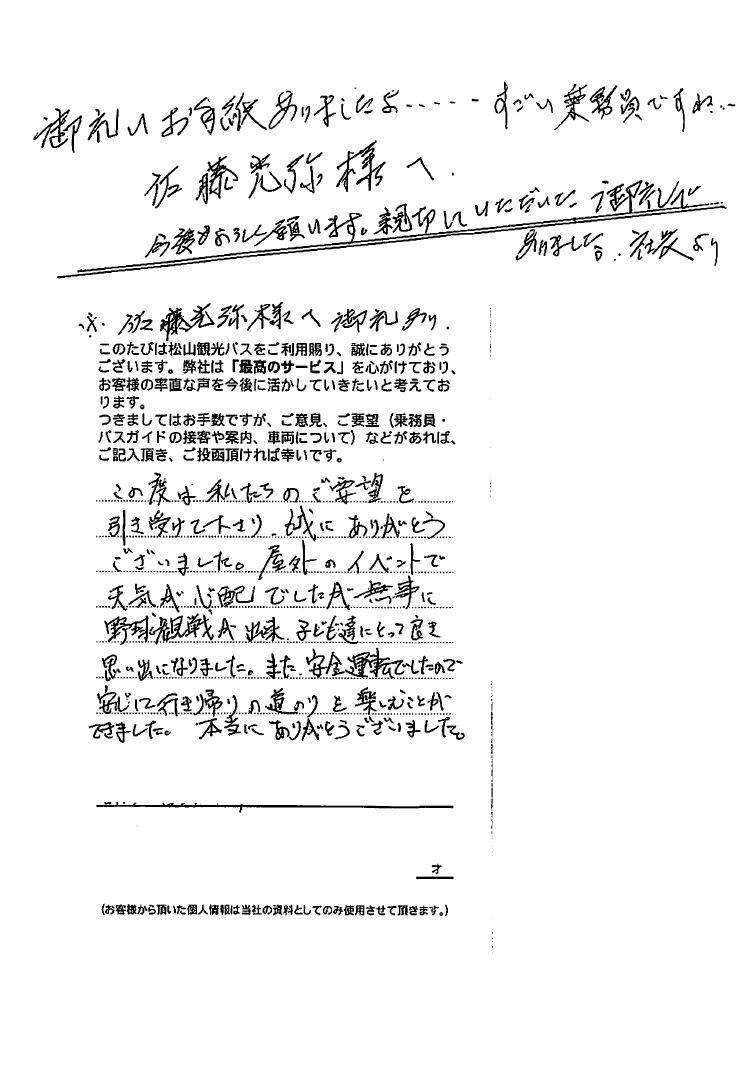 御礼いお手紙ありましたよ・・・・・すごい乗務員ですね・・
佐藤光弥様へ.
今後もよろしく願います。親切にしていただいた、御礼が
ありました。社長より
※. 佐藤光弥様へ御礼あり.
このたびは松山観光バスをご利用賜り、誠にありがとう
ございます。弊社は「最高のサービス」を心がけており、
お客様の率直な声を今後に活かしていきたいと考えてお
ります。
つきましてはお手数ですが、ご意見、ご要望（乗務員・
バスガイドの接客や案内、車両について）などがあれば、
ご記入頂き、ご投函頂ければ幸いです。
この度は私たちのご要望を
引き受けて下さり、誠にありがとう
ございました。屋外のイベントで
天気が心配でしたが無事に
野球観戦が出来、子ども達にとって良き
思い出になりました。また、安全運転でしたので
安心して行き帰りの道のりを楽しむことが
できました。本当にありがとうございました。
才
（お客様から頂いた個人情報は当社の資料としてのみ使用させて頂きます。）